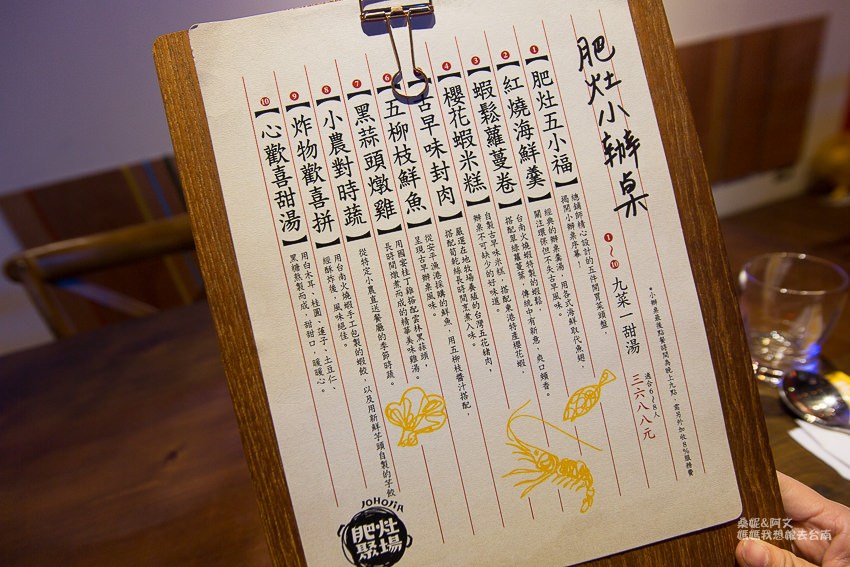 肥灶小辦桌
❶~❿ 九菜一甜湯
適合6~8人
三六八八元
*小辦桌最後點餐時間為晚上九點,需另外加收8%服務費
❶【肥灶五小福】
總鋪師精心設計的五件開胃菜頭盤,
揭開小辦桌序幕!
❷【紅燒海鮮羹】
經典的辦桌羹湯,用各式海鮮取代魚翅,
關注環保但不失古早風味。
❸【蝦鬆蘿蔓卷】
台南火燒蝦特製的蝦鬆,
搭配翠綠蘿蔓葉,傳統中有新意,爽口頰香。
❹【櫻花蝦米糕】
自製古早味米糕,搭配東港特產櫻花蝦,
辦桌不可缺少的好味道。
【古早味封肉】
嚴選在地牧場養殖的台灣五花豬肉,
搭配筍乾絲長時間烹煮入味。
❻【五柳枝鮮魚】
從安平漁港採購的鮮魚,用五柳枝醬汁搭配,
呈現古早辦桌風味。
❼【黑蒜頭燉雞】
用國宴桂丁雞搭配雲林黑蒜頭,
長時間燉煮而成的精華美味雞湯。
❽【小農對時蔬】
從特定小農直送餐廳的季節時蔬。
❾【炸物歡喜拼】
用台南火燒蝦手工包製的蝦餃,以及用新鮮芋頭自製的芋餃
經酥炸後,風味絕佳。
❿【心歡喜甜湯】
用白木耳、桂圓、蓮子、土豆仁、
黑糖熬製而成,甜甜口,暖暖心。
JOHOJIA
肥灶聚場
桑妮&阿文
媽媽我想嫁去台南